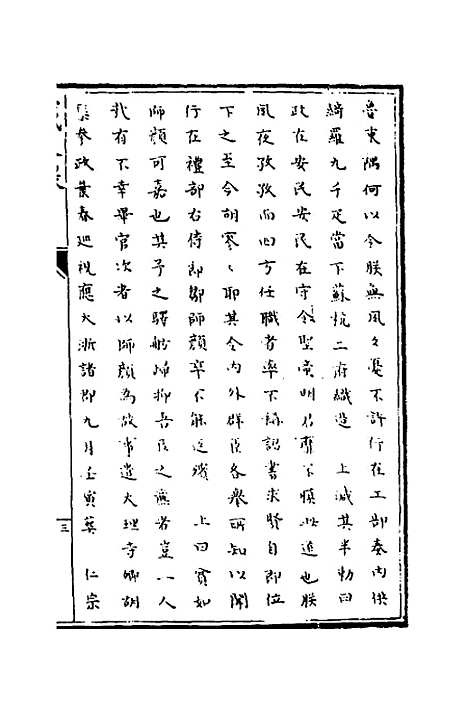 魯東隅何以令朕無風夙憂不許行在工部奏內供
綺羅九千疋當下蘇杭二府織造　上減其半勅曰
政在安民安民在守令聖帝明君靡不慎此道也朕
夙夜孜孜而四方任職者率下稱詔書求賢自即位
下之至今胡寥〻耶其令內外群臣各舉所知以聞
行在禮部右侍郎鄒師顏卒不能返殯　上曰實如
師顏可嘉也其予之驛舫歸抑吾臣之廉者豈一人
我有不幸畢官次者以師顏為故事遣大理寺卿胡
參政葉春巡視應天浙諸郡九月壬寅葬　仁宗
三